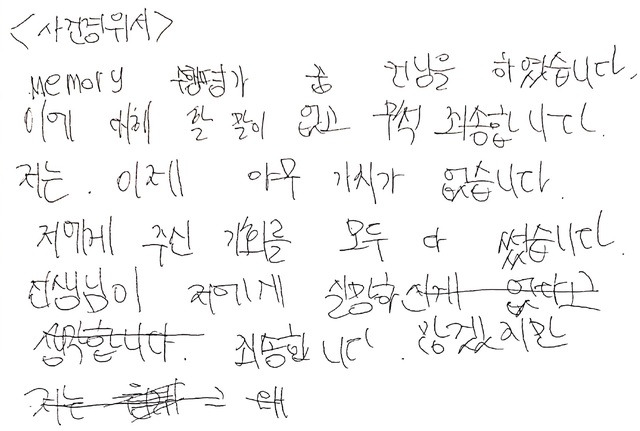 <사건경위서>
memory 수행평가 중 컨닝을 하였습니다,
이에 대해 할 말이 없고 무척 죄송합니다.
저는. 이제 아무 가치가 없습니다.
저에게 주신 기회를 모두 다 썼습니다.
선생님이 저에게 실망하신게 없다고
생각합니다. 죄송합니다. 많겠지만
저는 왜